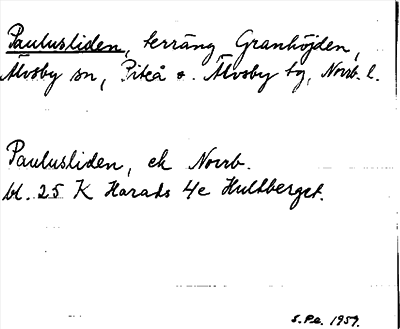 Paulusliden, terräng Granhöjden,
Älvsby sn, Piteå o. Älvsby tg, Norrb. l.
Paulusliden, ek Norrb.
bl. 25 K Harads 4e Hultberget.
S.Pe. 1959.